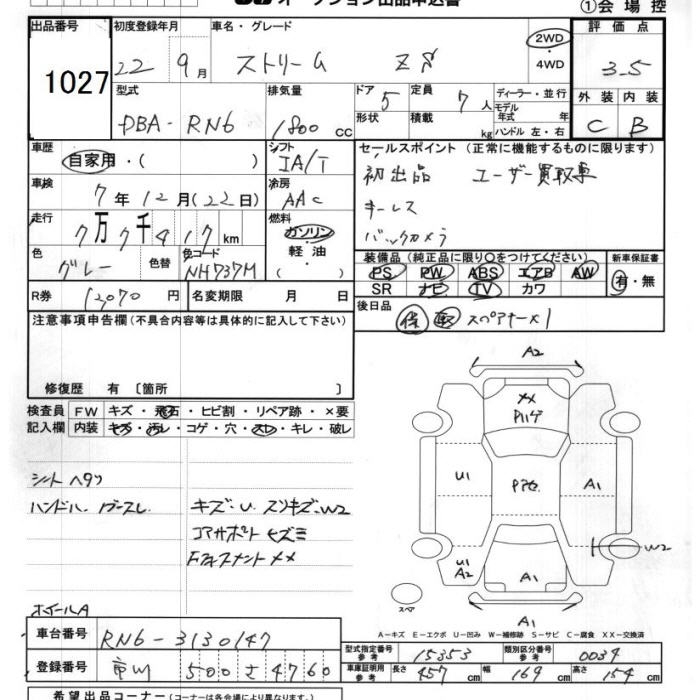 オークション出品申込書
①会場控
出品番号 初度登録年月 車名・グレード 評価点
1027 22 9月 ストリーム ZS 2WD・4WD 3.5
型式 排気量 ドア 定員 ディーラー・並行 外装 内装
DBA-RN6 1800 CC 5 7人 モデル年式 年 C B
形状 積載 kg ハンドル 左・右
車歴 自家用・( ) シフト IA/T セールスポイント (正常に機能するものに限ります)
車検 7年12月(22日) 冷房 AAC 初出品 ユーザー買取車
走行 7万7千417km 燃料 ガソリン・軽油・( ) キーレス
バックカメラ
色 グレー 色替 色コード NH737M
装備品 (純正品に限り○をつけてください) 新車保証書
PS PW ABS エアB AW 有・無
SR ナビ TV カワ
R券 12,070円 名変期限 月 日
後日品 スペアキー×1
注意事項申告欄(不具合内容等は具体的に記入して下さい)
修復歴 有 〔箇所 〕
検査員 FW キズ・飛石・ヒビ割・リペア跡・×要
記入欄 内装 キズ・汚レ・コゲ・穴・スレ・キレ・破レ
シートヘタリ
ハンドル
キズ・U スリキズ・W2
コアサポート
メメ
ホイールA
A2
U1
A1
W2
U1
A2
A1
A1
スペア
A－キズ E－エクボ U－凹み W－補修跡 S－サビ C－腐食 XX－交換済
車台番号 RN6-3130147
登録番号 500さ4760
型式指定番号 参考 15353 類別区分番号 参考 0034
車庫証明用 参考 長さ 457cm 幅 169cm 高さ 154cm
希望出品コーナー(コーナーは各会場